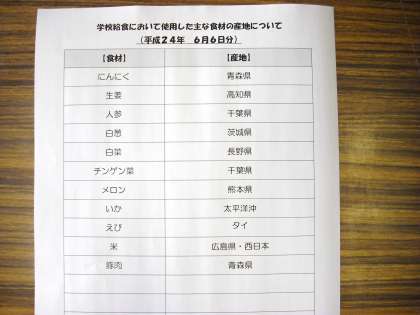 学校給食において使用した主な食材の産地について
(平成24年 6月6日分)
【食材】 【産地】
にんにく 青森県
生姜 高知県
人参 千葉県
白葱 茨城県
白菜 長野県
チンゲン菜 千葉県
メロン 熊本県
いか 太平洋沖
えび タイ
米 広島県・西日本
豚肉 青森県